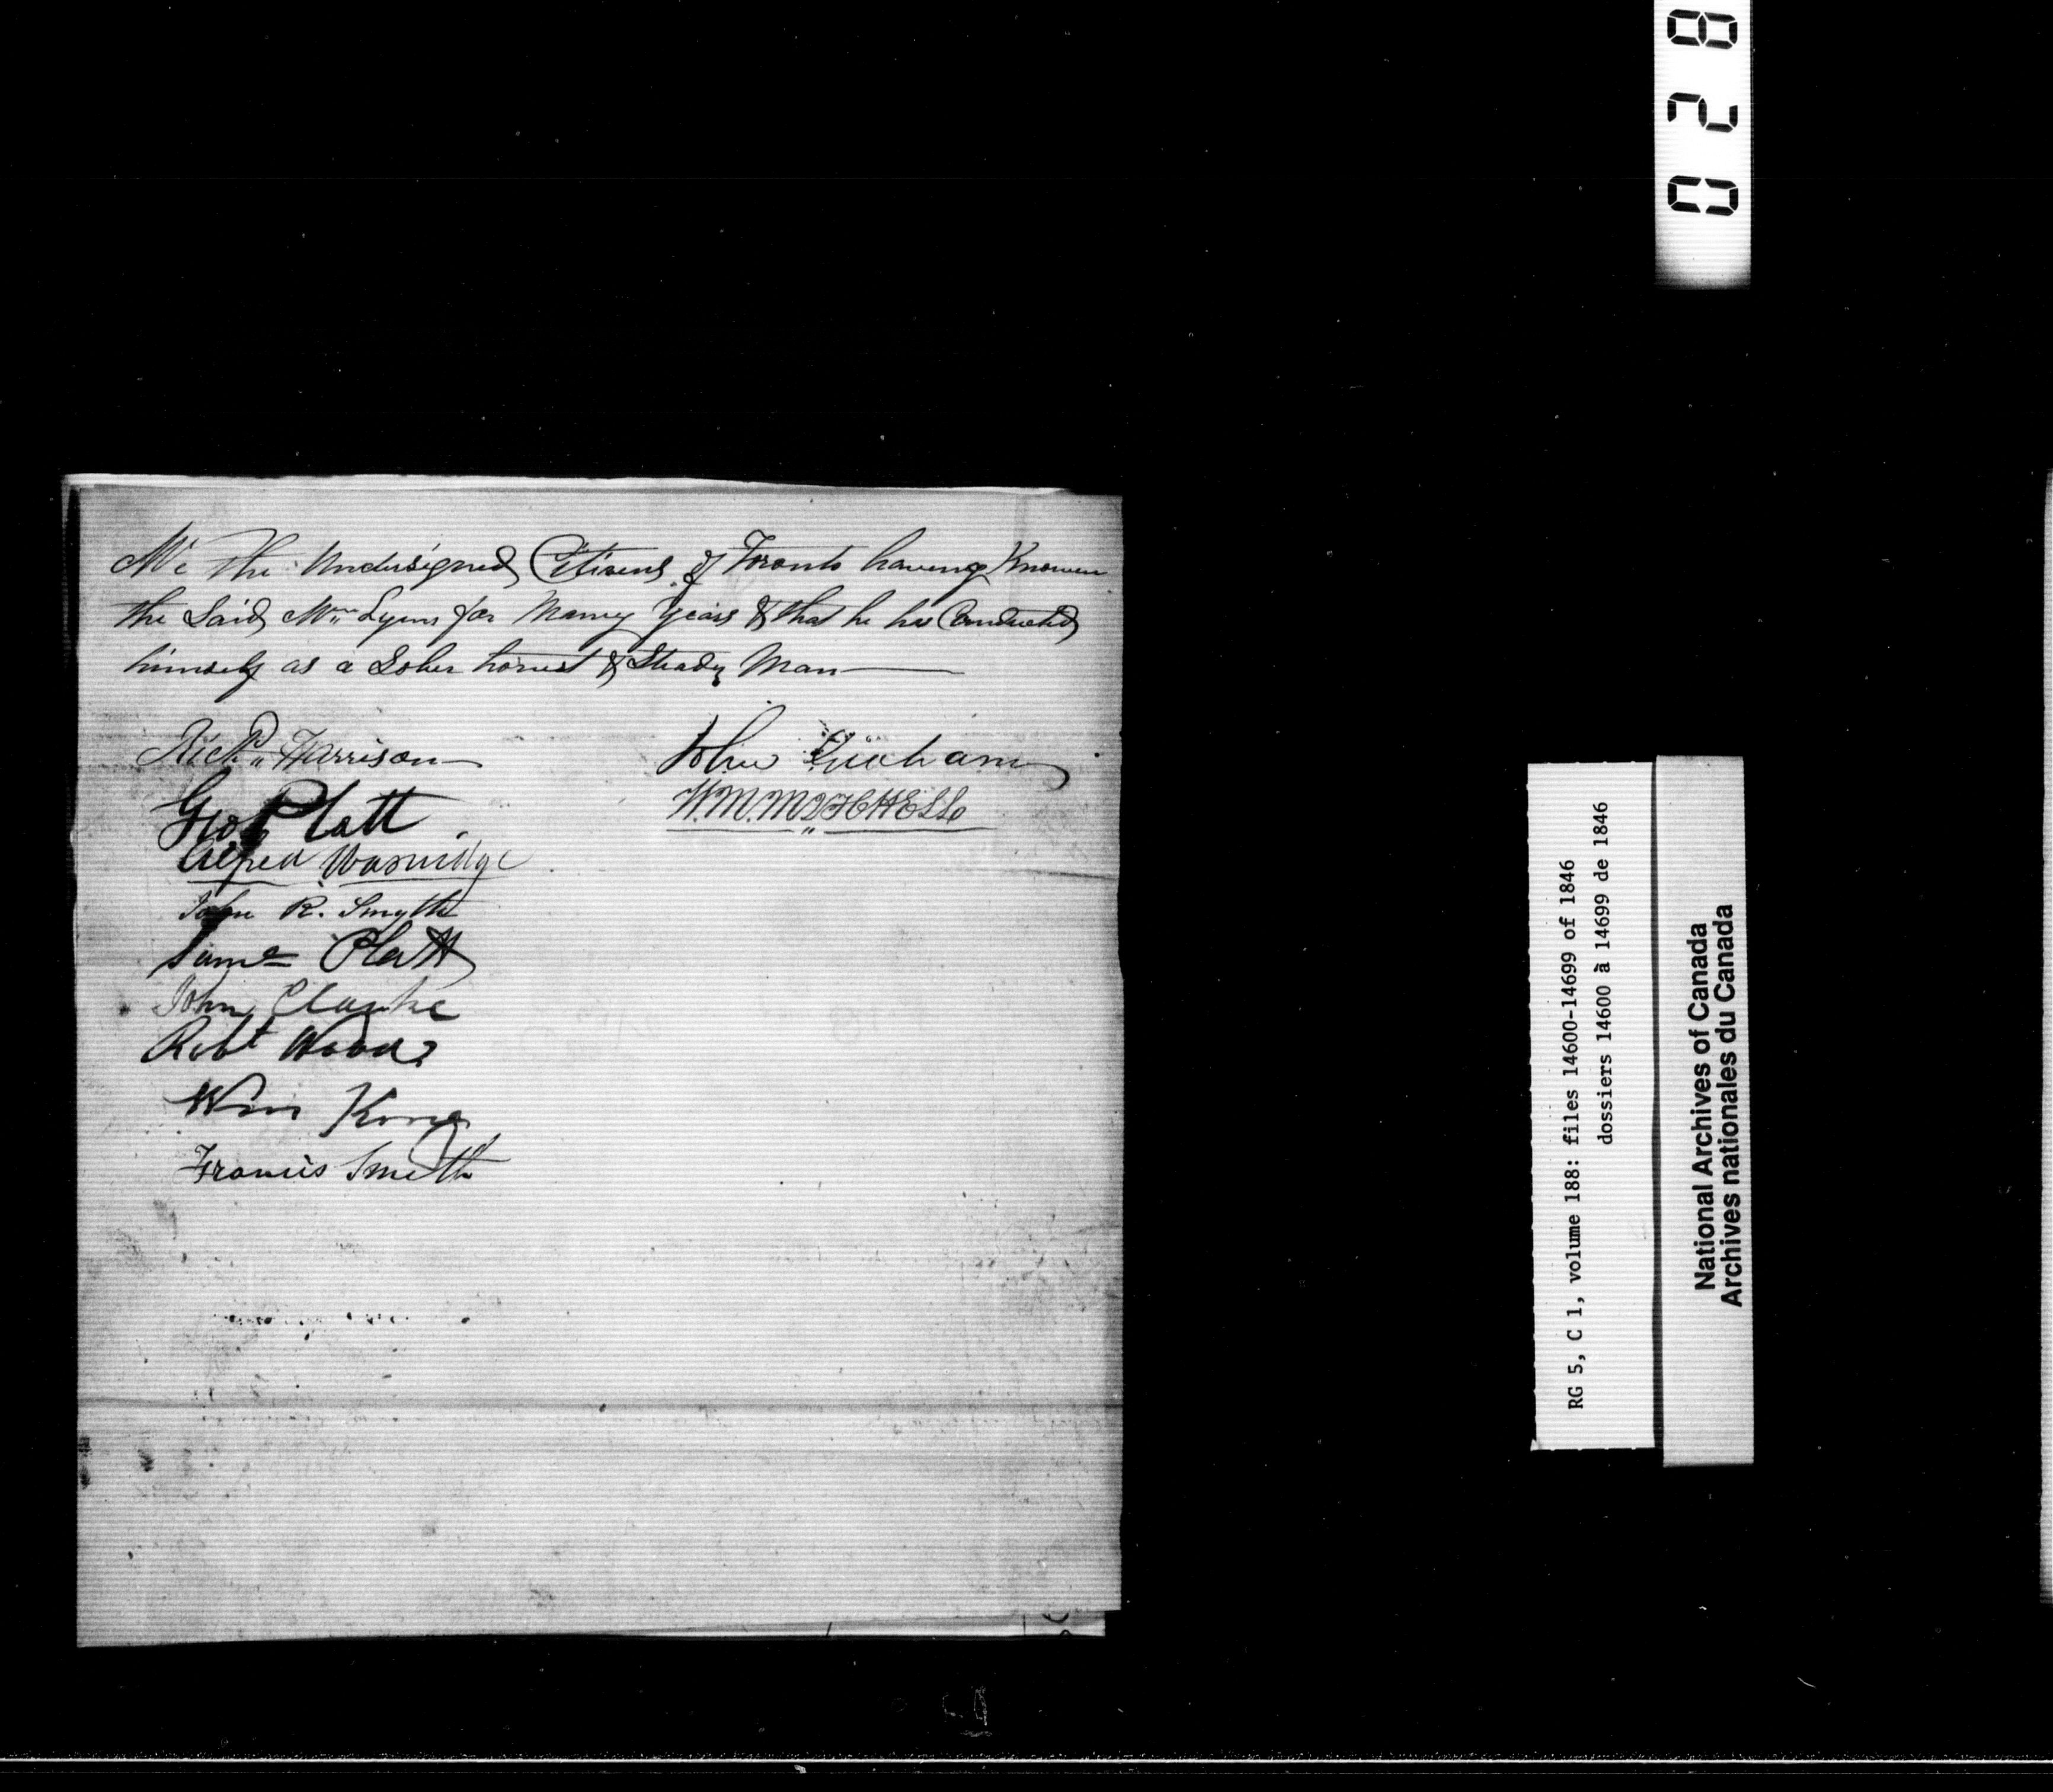 We the Undersigned Citizens of Toronto having Known
the Said Wm Lyons for Many Years & that he has Conducted
himself as a Sober honest & Steady Man
Richd Harrison
Geo Platt
Alfred
John R. Smyth
James Platt
John Clarke
Robt Woods
Wm King
Francis Smith
John Graham
W. M. MITCHELL
028
RG 5, C 1, volume 188: files 14600-14699 of 1846
dossiers 14600 à 14699 de 1846
National Archives of Canada
Archives nationales du Canada